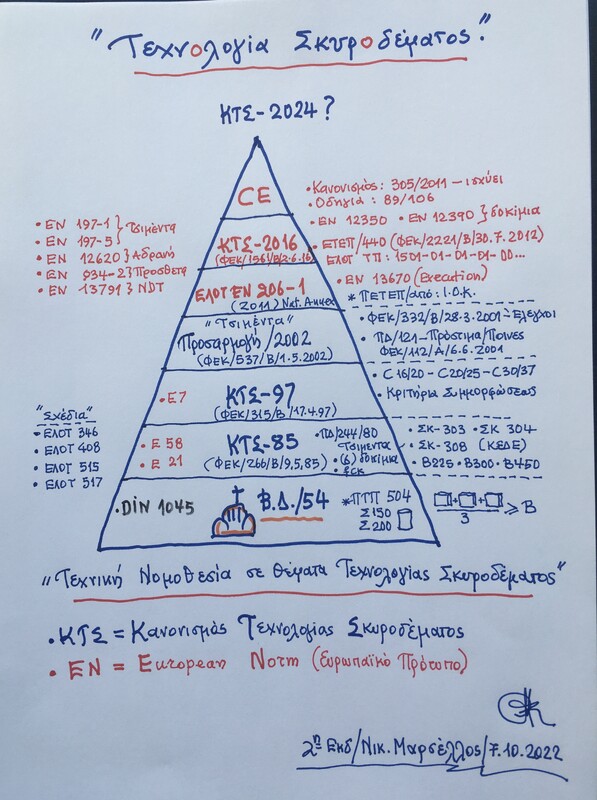 "Τεχνολογία Σκυροδέματος."
ΚΤΣ-2024?
CE
• Κανονισμός: 305/2011 – ισχύει
• Οδηγία: 89/106
• EN 12350 • EN 12390 } δοκίμια
• EN 197-1
• EN 197-5 } Τσιμέντα
• EN 12620 } Αδρανή
• EN 934-2 } Πρόσθετα
• EN 13791 } NDT
ΚΤΣ-2016
(ΦΕΚ/1561/Β/2.6.16)
• ΕΤΕΠ/440 (ΦΕΚ/2221/Β/30.7.2012)
ΕΛΟΤ ΤΠ: 1501-01-01-01-00...
• EN 13670 (Execution)
ΕΛΟΤ EN 206-1
(2011) Nat. Annex
* ΠΕΤΕΠ/από: Ι.Ο.Κ.
"Τσιμέντα"
Προσαρμογή/2002
(ΦΕΚ/537/Β/1.5.2002)
• ΦΕΚ/332/Β/28.3.2001-Έλεγχοι
• ΠΔ/121-Πρόστιμα/Ποινες
ΦΕΚ/112/Α/6.6.2001
• Ε7
ΚΤΣ-97
(ΦΕΚ/315/Β/17.4.97)
• C16/20 - C20/25 - C30/37
• Κριτήρια Συμμορφώσεως
"Σχέδια"
• ΕΛΟΤ 346
• ΕΛΟΤ 408
• ΕΛΟΤ 515
• ΕΛΟΤ 517
• Ε 58
• Ε 21
ΚΤΣ-85
(ΦΕΚ/266/Β/9,5,85)
• ΠΔ/244/80
Τσιμεντα
• (6) δοκίμια
fck
• ΣΚ-303 • ΣΚ 304
• ΣΚ-308 (ΚΕΔΕ)
• Β225 • Β300 • Β450
• DIN 1045
Β.Δ./54
* ΠΤΠ 504
Σ150
Σ200
+ + / 3 ≥ Β
"Τεχνική Νομοθεσία σε θέματα Τεχνολογίας Σκυροδέματος"
• ΚΤΣ = Κανονισμός Τεχνολογίας Σκυροδέματος
• EN = European Norm (Ευρωπαϊκό Πρότυπο)
2η Εκδ/Νικ. Μαρσέλλος/7.10.2022